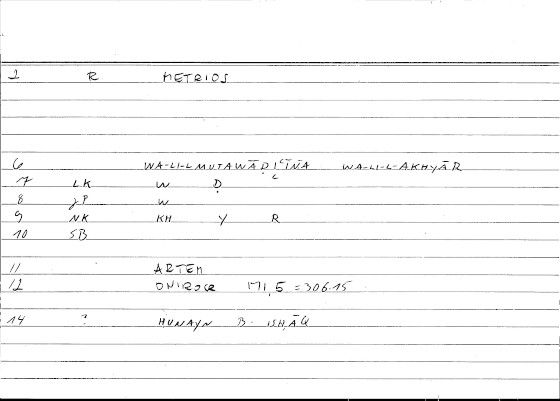 1 R METRIOS
6 WA-LI-L MUTAWĀḌIʿĪNA WA-LI-L-AKHYĀR
7 LK W Ḍ ʿ
8 JP W
9 NK KH Y R
10 SB
11 ARTEM
12 ONIROCR 171,5 = 306.15
14 ? ḤUNAYN B. ISḤĀQ